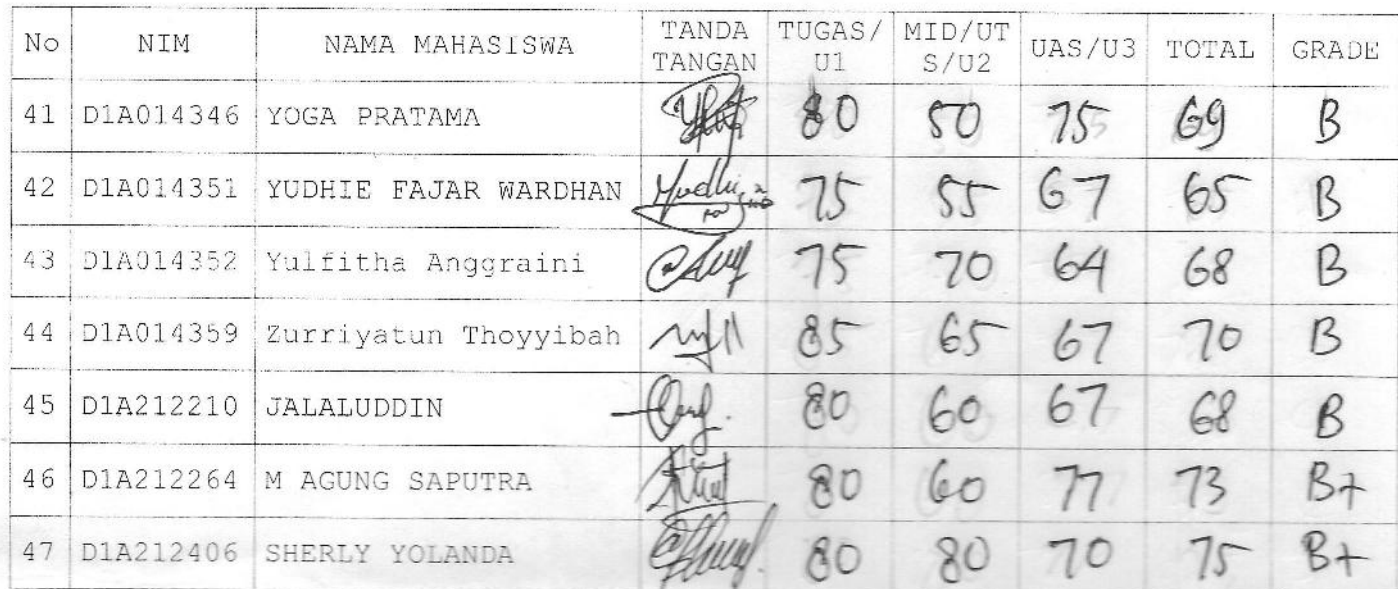 No NIM NAMA MAHASISWA TANDA TANGAN TUGAS/U1 MID/UTS/U2 UAS/U3 TOTAL GRADE
41 D1A014346 YOGA PRATAMA 80 50 75 69 B
42 D1A014351 YUDHIE FAJAR WARDHAN 75 55 67 65 B
43 D1A014352 Yulfitha Anggraini 75 70 64 68 B
44 D1A014359 Zurriyatun Thoyyibah 85 65 67 70 B
45 D1A212210 JALALUDDIN 80 60 67 68 B
46 D1A212264 M AGUNG SAPUTRA 80 60 77 73 B+
47 D1A212406 SHERLY YOLANDA 80 80 70 75 B+